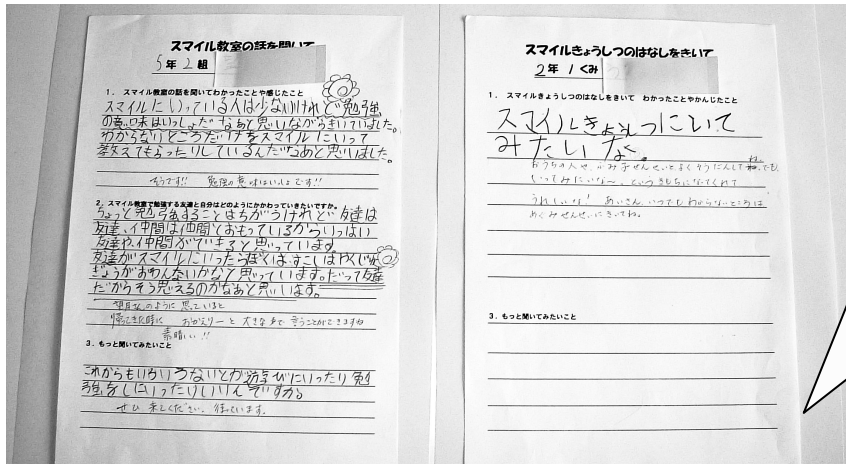 スマイル教室の話を聞いて
5年 2組
1. スマイル教室の話を聞いてわかったことや感じたこと
スマイルにいっている人は少ないけれど勉強
の意味はいっしょだなあと思いながらきいていました。
わからないところだけをスマイルにいって
教えてもらったりしているんだなあと思いました。
そうです!! 勉強の意味はいっしょです!!
2. スマイル教室で勉強する友達と自分はどのようにかかわっていきたいですか。
ちょっと勉強することはちがうけれど友達は
友達、仲間は仲間とおもっているからいっぱい
友達や、仲間ができると思っています。
友達がスマイルにいったらぼくは、すこしはやくじゅ
ぎょうがおわんないかなと思っています。だって友達
だからそう思えるのかなあと思います。
のように 思っていると
帰ってきた時に おかえりーと 大きな声で 言うことができますね
素晴しい!!
3. もっと聞いてみたいこと
これからもいろいろないとか遊びにいったり勉
強をしにいったりしいいんですか
ぜひ 来てください。待っています。
スマイルきょうしつのはなしをきいて
2年 1くみ
1. スマイルきょうしつのはなしをきいて わかったことやかんじたこと
スマイルきょうしつにいて
みたいな。
おうちの人や、ふみ子せんせいとよくそうだんしてね。でも、
いってみたいな〜、というきもちになってくれて
うれしいな! あいさん、いつでもわからないところは
めぐみせんせいにきいてね。
3. もっと聞いてみたいこと